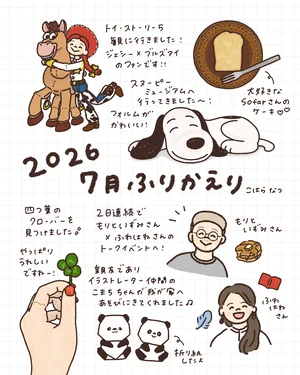 トイ・ストーリー5
観に行きました！
ジェシー×ブルズアイ
のファンです！！
大好きな
Sofarさんの
ケーキ♡
スヌーピー
ミュージアムへ
行ってきました〜！
フォルムが
かわいい！
2026
7月ふりかえり
こはら なつ
四つ葉の
クローバーを
見つけました♪
やっぱり
うれしい
ですね〜！
2日連続で
もりといずみさん
×ふわはねさんの
トークイベントへ！
もりと
いずみさん
ふわ
はね
さん
親友であり
イラストレーター仲間の
こまちちゃんが我が家へ
あそびにきてくれました♫
折り紙
したよ